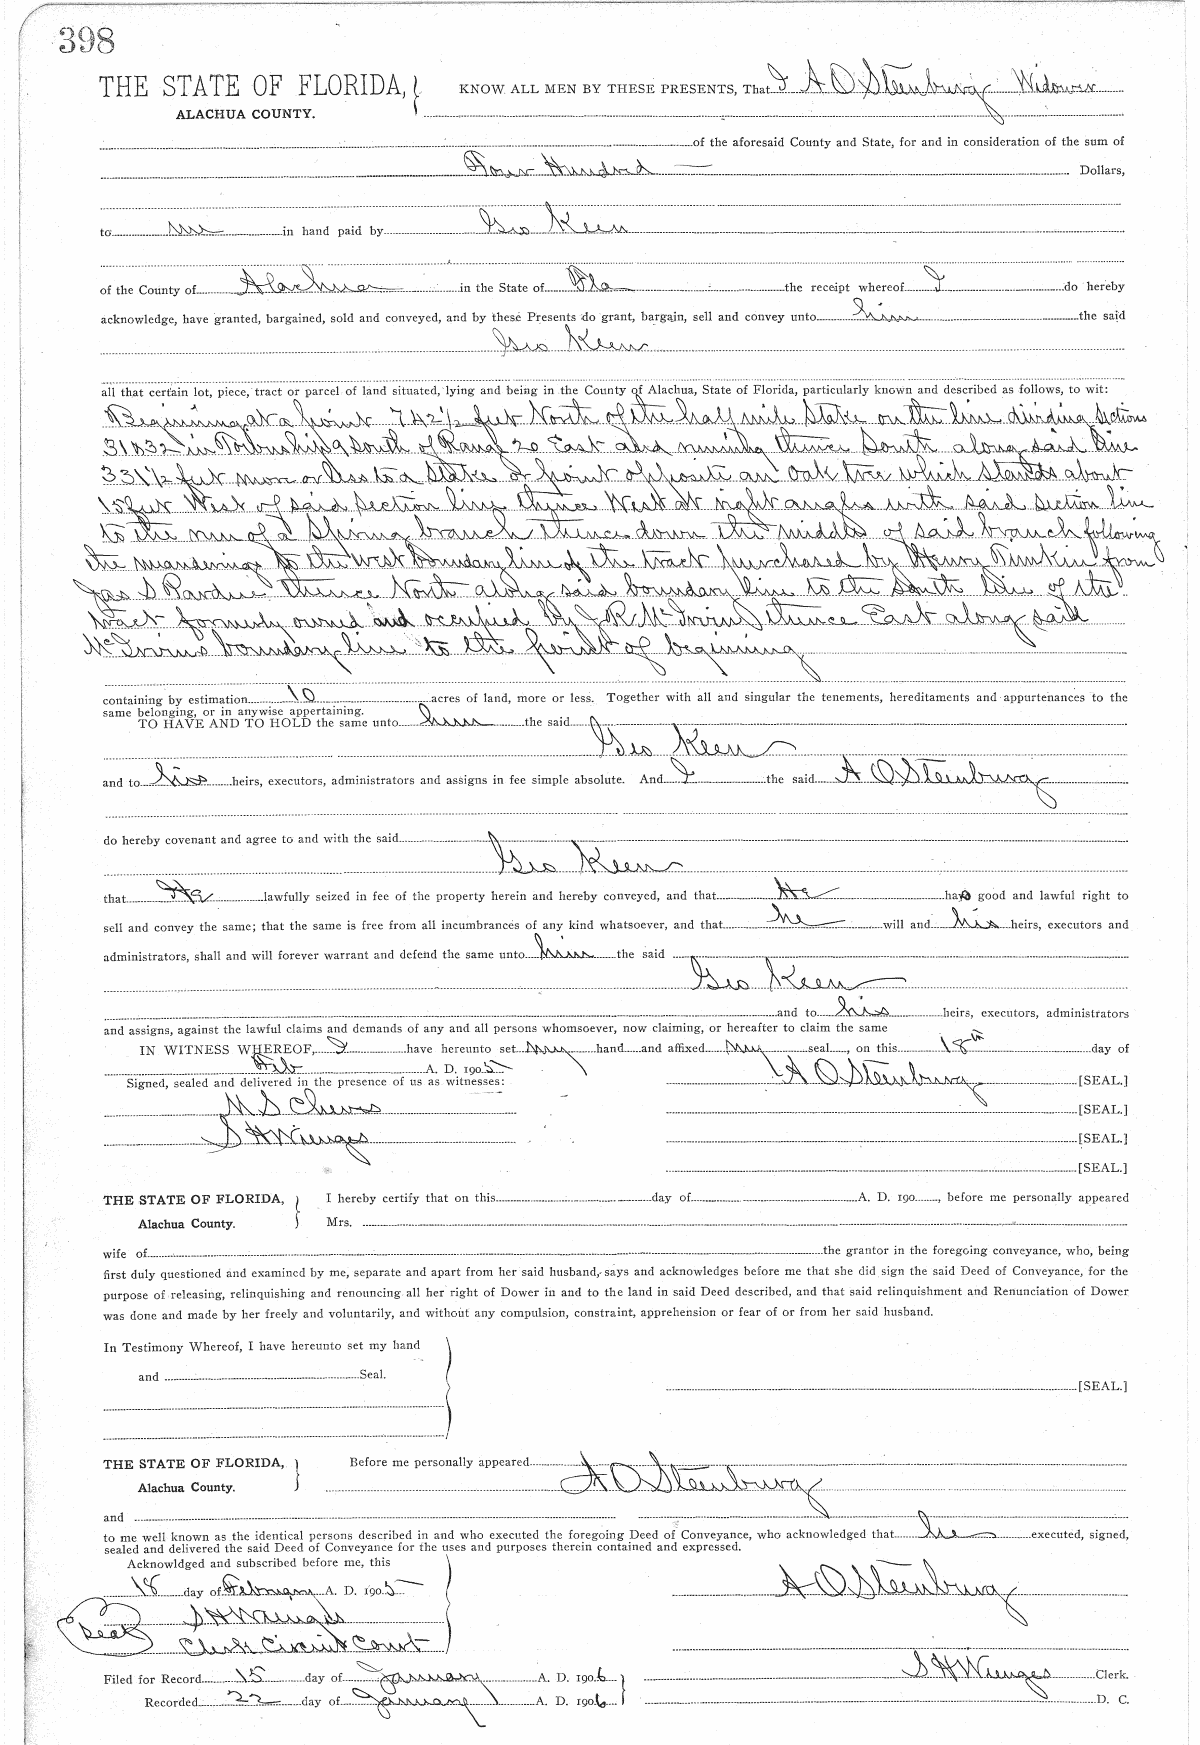 398
THE STATE OF FLORIDA, KNOW ALL MEN BY THESE PRESENTS, That I A O Steenburg Widower
ALACHUA COUNTY.
of the aforesaid County and State, for and in consideration of the sum of
Four Hundred Dollars,
to me in hand paid by Geo Keen
of the County of Alachua in the State of Fla the receipt whereof I do hereby
acknowledge, have granted, bargained, sold and conveyed, and by these Presents do grant, bargain, sell and convey unto him the said
Geo Keen
all that certain lot, piece, tract or parcel of land situated, lying and being in the County of Alachua, State of Florida, particularly known and described as follows, to wit:
Beginning at a point 742½ feet North of the half mile Stake on the line dividing Sections
31 & 32 in Township 9 South of Range 20 East and running thence South along said line
331½ feet more or less to a Stake or point opposite an Oak tree which stands about
15 feet West of said Section line thence West at right angles with said Section line
to the run of a Spring branch thence down the middle of said branch following
the meanderings to the west boundary line of the tract purchased by Henry from
Jas S Pardue thence North along said boundary line to the South line of the
tract formerly owned and occupied by J.R. McIrvin thence East along said
McIrvins boundary line to the point of beginning
containing by estimation 10 acres of land, more or less. Together with all and singular the tenements, hereditaments and appurtenances to the
same belonging, or in anywise appertaining.
TO HAVE AND TO HOLD the same unto him the said
Geo Keen
and to his heirs, executors, administrators and assigns in fee simple absolute. And I the said A O Steenburg
do hereby covenant and agree to and with the said
Geo Keen
that He lawfully seized in fee of the property herein and hereby conveyed, and that He has good and lawful right to
sell and convey the same; that the same is free from all incumbrances of any kind whatsoever, and that he will and his heirs, executors and
administrators, shall and will forever warrant and defend the same unto him the said
Geo Keen
and to his heirs, executors, administrators
and assigns, against the lawful claims and demands of any and all persons whomsoever, now claiming, or hereafter to claim the same
IN WITNESS WHEREOF, I have hereunto set my hand and affixed my seal, on this 18th day of
Feb A. D. 1905
Signed, sealed and delivered in the presence of us as witnesses: A O Steenburg [SEAL.]
M S Cheves [SEAL.]
S H Wienges [SEAL.]
[SEAL.]
THE STATE OF FLORIDA, I hereby certify that on this day of A. D. 190 , before me personally appeared
Alachua County. Mrs.
wife of the grantor in the foregoing conveyance, who, being
first duly questioned and examined by me, separate and apart from her said husband, says and acknowledges before me that she did sign the said Deed of Conveyance, for the
purpose of releasing, relinquishing and renouncing all her right of Dower in and to the land in said Deed described, and that said relinquishment and Renunciation of Dower
was done and made by her freely and voluntarily, and without any compulsion, constraint, apprehension or fear of or from her said husband.
In Testimony Whereof, I have hereunto set my hand
and Seal. [SEAL.]
THE STATE OF FLORIDA, Before me personally appeared
Alachua County. A O Steenburg
and
to me well known as the identical persons described in and who executed the foregoing Deed of Conveyance, who acknowledged that he executed, signed,
sealed and delivered the said Deed of Conveyance for the uses and purposes therein contained and expressed.
Acknowldged and subscribed before me, this
18 day of February A. D. 1905 A O Steenburg
Seal S H Wienges
Clerk Circuit Court
Filed for Record 15 day of January A. D. 1906 S H Wienges Clerk.
Recorded 22 day of January A. D. 1906 D. C.